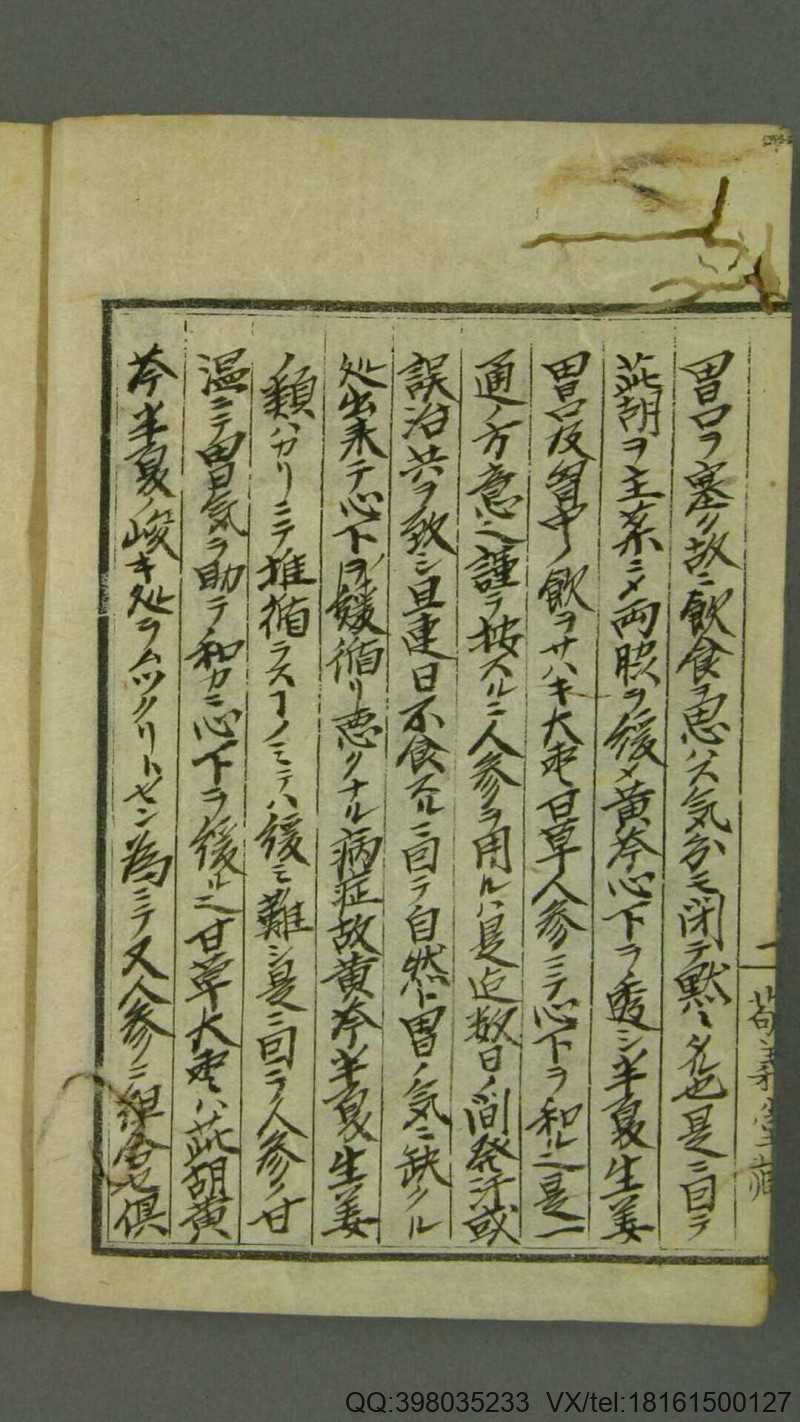 胃口ヲ塞ク故ニ飲食ヲ思ハス気分モ閉テ黙々タル也是ニ因テ
茈胡ヲ主薬ニメ両脇ヲ緩メ黄芩心下ヲ透シ半夏生姜
胃口及胷中ノ飲ヲサハキ大枣甘草人参ニテ心下ヲ和ル之是一
通ノ方意之謹テ按スルニ人参ヲ用ルハ是迄数日ノ間発汗或
誤治共ヲ致シ且連日不食スルニ因テ自然ト胃ノ気ニ缺クル
処出来テ心下ヲ循リ悪クナル病症故黄芩半夏生姜
ノ類ハカリニテ推循ラスヿノミテハ緩ミ難シ是ニ因テノ人参ノ甘
温ニテ胃気ヲ助テ和カニ心下ヲ緩ル之甘草大枣ハ茈胡黄
芩半夏ノ峻キ処ヲムツクリトセン為ニテ又人参ノニ組合セ俱
二
義堂蔵
QQ:398035233 VX/tel:18161500127